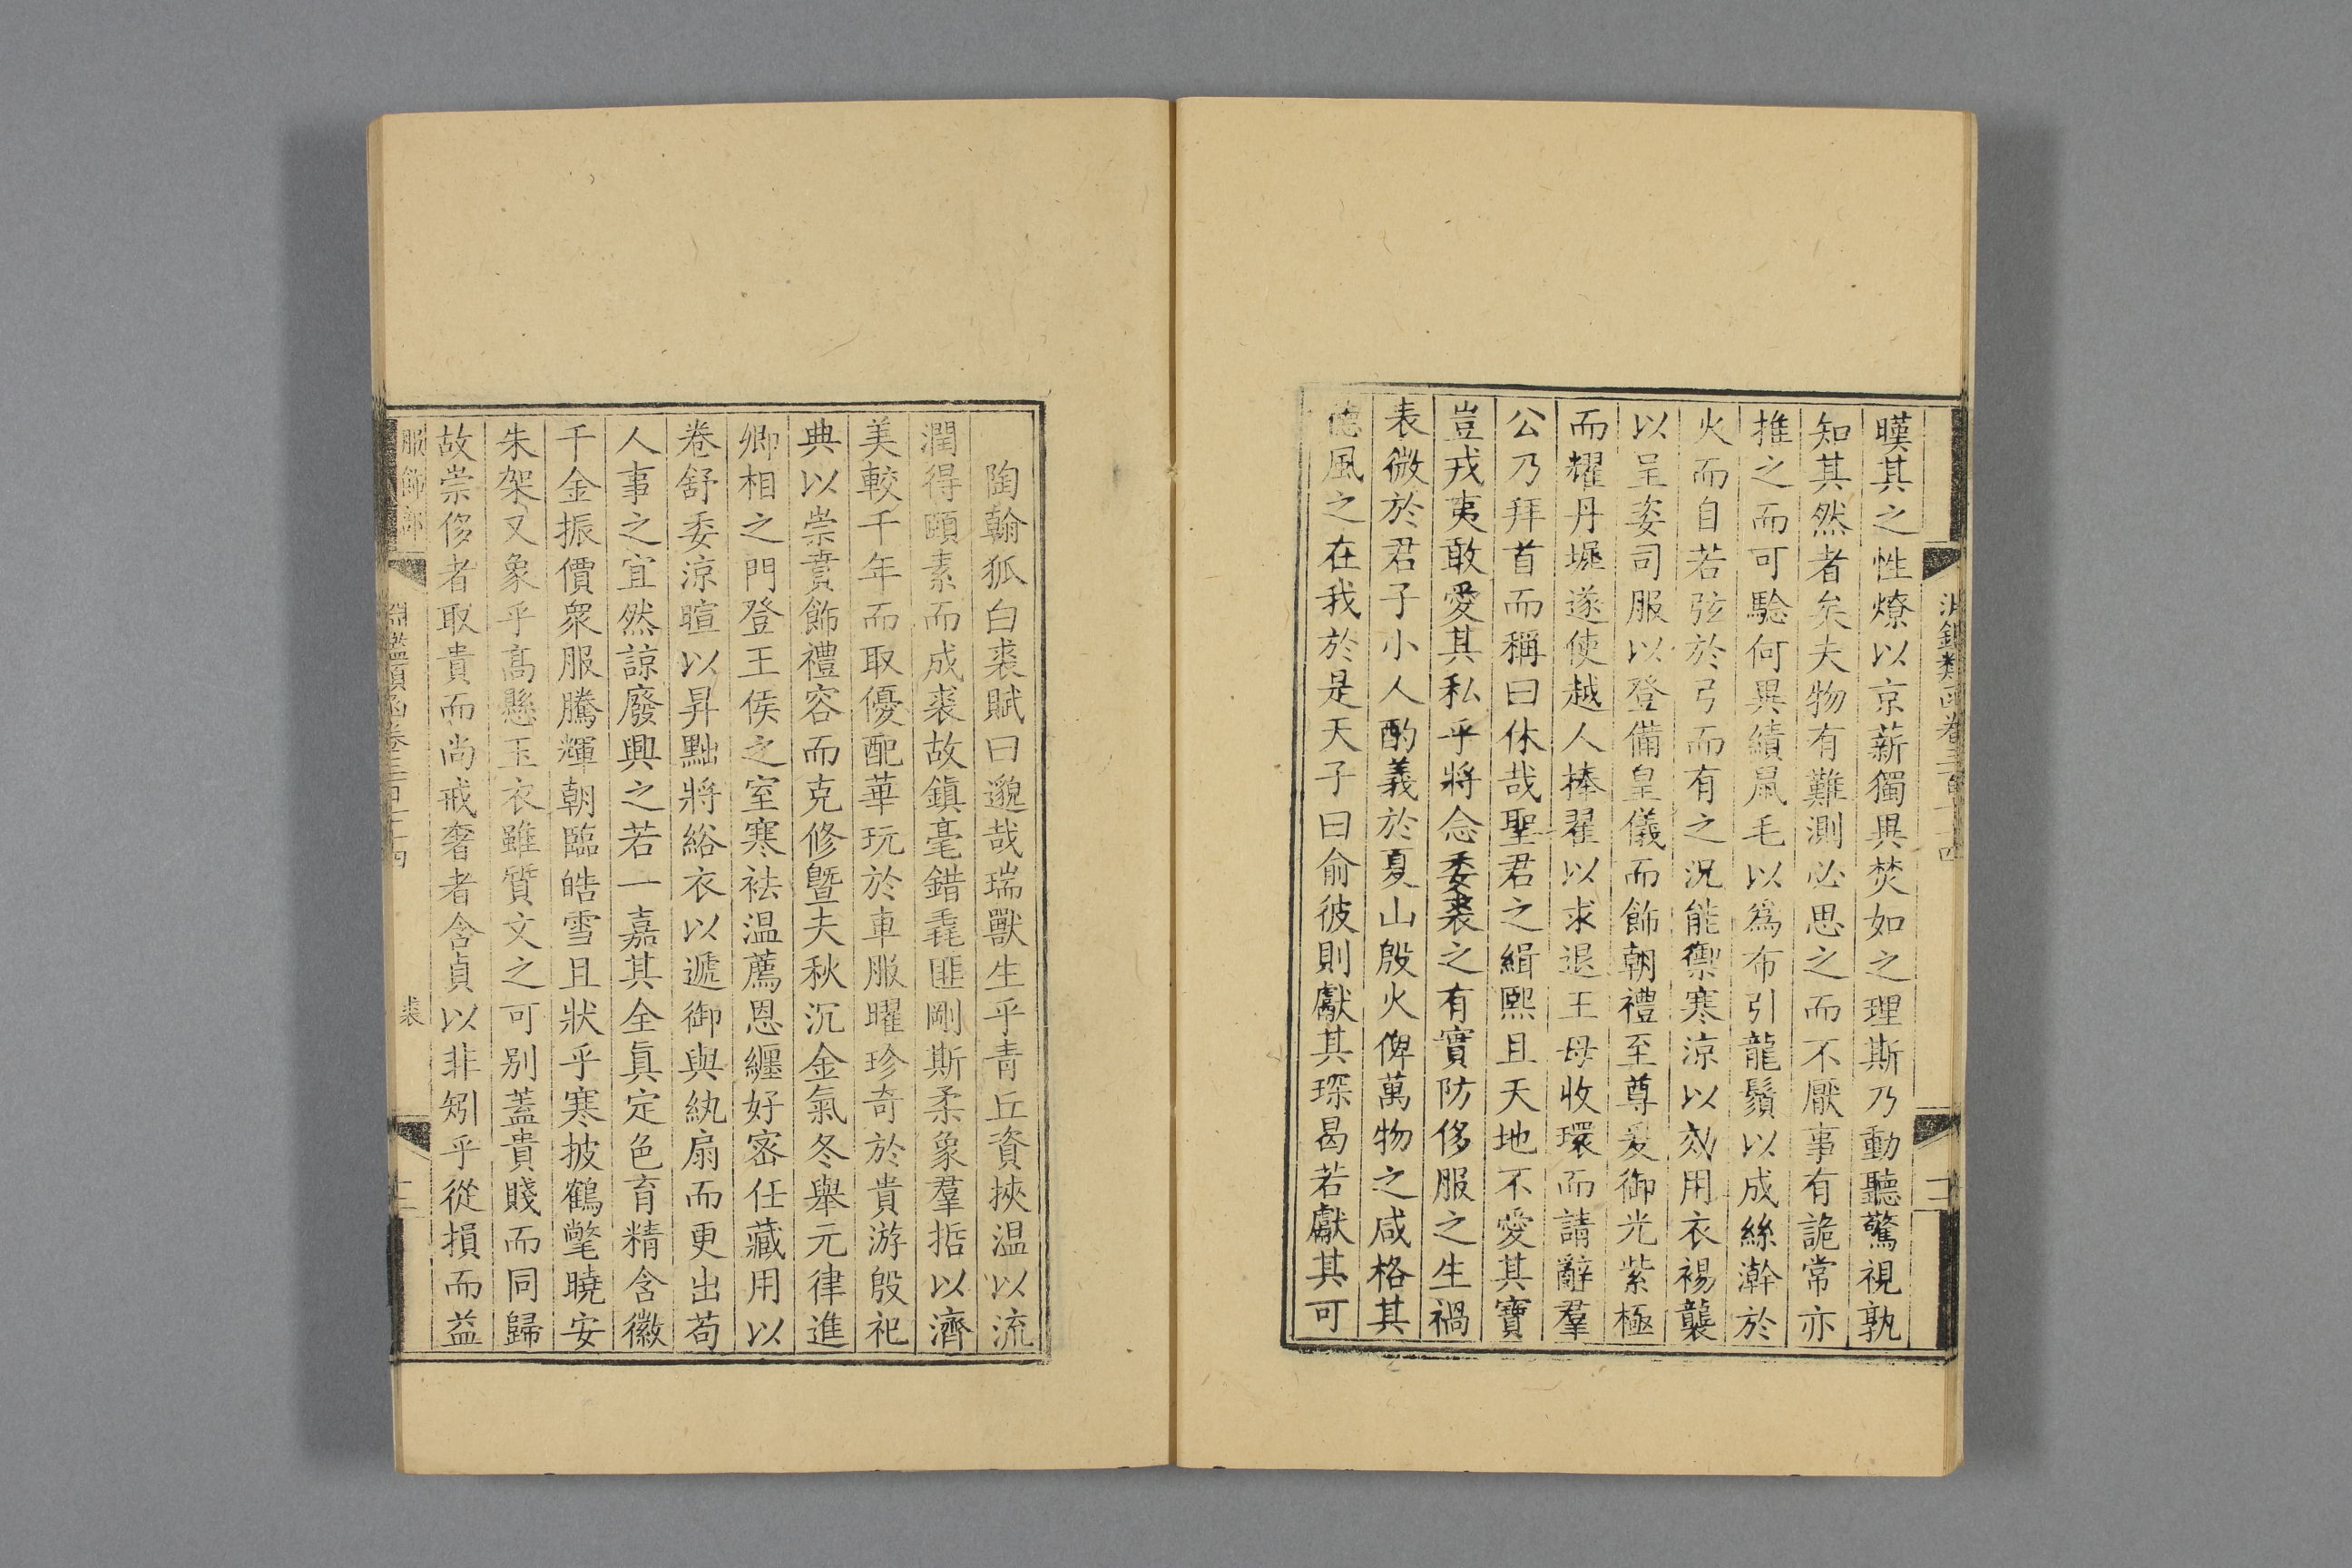 暵其之性燎以京薪獨異焚如之理斯乃動聽驚視孰
知其然者矣夫物有難測必思之而不厭事有詭常亦
推之而可驗何異績鼠毛以為布引龍鬚以成絲澣於
火而自若弦於弓而有之況能禦寒涼以效用衣裼襲
以呈姿司服以登備皇儀而飾朝禮至尊爰御光紫極
而耀丹墀遂使越人捧翟以求退王母收環而請辭羣
公乃拜首而稱曰休哉聖君之緝熙且天地不愛其寶
豈戎夷敢愛其私乎將念委裘之有實防侈服之生禍
表微於君子小人酌義於夏山殷火俾萬物之咸格其
德風之在我於是天子曰俞彼則獻其琛曷若獻其可
陶翰狐白裘賦曰邈哉瑞獸生乎青丘資挾温以流
潤得頤素而成裘故鎮毫錯毳匪剛斯柔象羣哲以濟
美較千年而取優配華玩於車服曜珍奇於貴游殷祀
典以崇賁飾禮容而克修曁夫秋沉金氣冬舉元律進
卿相之門登王侯之室寒袪温薦恩纒好密任藏用以
卷舒委涼暄以昇黜將綌衣以遞御與紈扇而更出苟
人事之宜然諒廢興之若一嘉其全眞定色育精含徽
千金振價衆服騰輝朝臨皓雪且狀乎寒披鶴氅曉安
朱架又象乎高懸玉衣雖質文之可别蓋貴賤而同歸
故崇侈者取貴而尚戒奢者含貞以非矧乎從損而益
服飾部
淵鑑類函卷三百七十四
裘
二